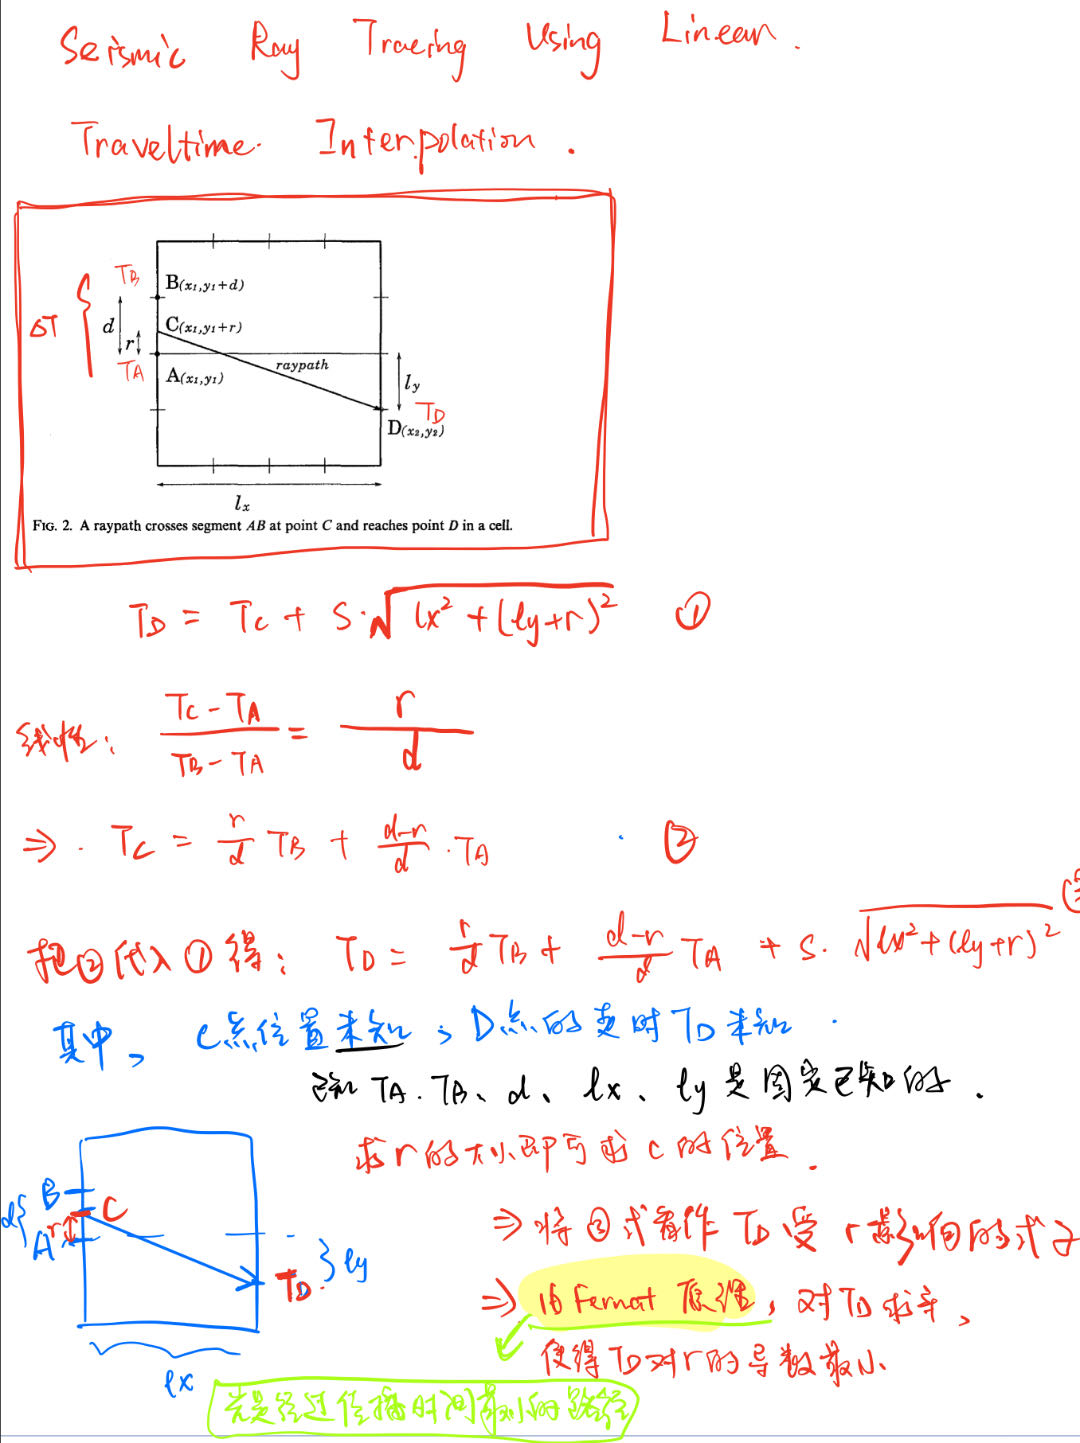 Seismic Ray Tracing Using Linear.
Traveltime. Interpolation.
TB
B(x₁,y₁+d)
ΔT
d
C(x₁,y₁+r)
r
TA
A(x₁,y₁)
raypath
ly
TD
D(x₂,y₂)
lx
FIG. 2. A raypath crosses segment AB at point C and reaches point D in a cell.
TD = Tc + S·√(lx² + (ly+r)²) ①
线性: (Tc - TA)/(TB - TA) = r/d
⇒. Tc = r/d TB + (d-r)/d · TA ②
把②代入①得: TD = r/d TB + (d-r)/d TA + S· √(lx² + (ly+r)²) ③
其中, C点位置未知; D点的走时TD未知.
已知 TA. TB、d、lx、ly是固定已知的.
求r的大小即可求C的位置.
B
C
d
A
r
ly
TD.
lx
⇒ 将③式看作TD受r影响的式子
⇒ 由Fermat原理, 对TD求导,
使得TD对r的导数最小.
光是经过传播时间最小的路径